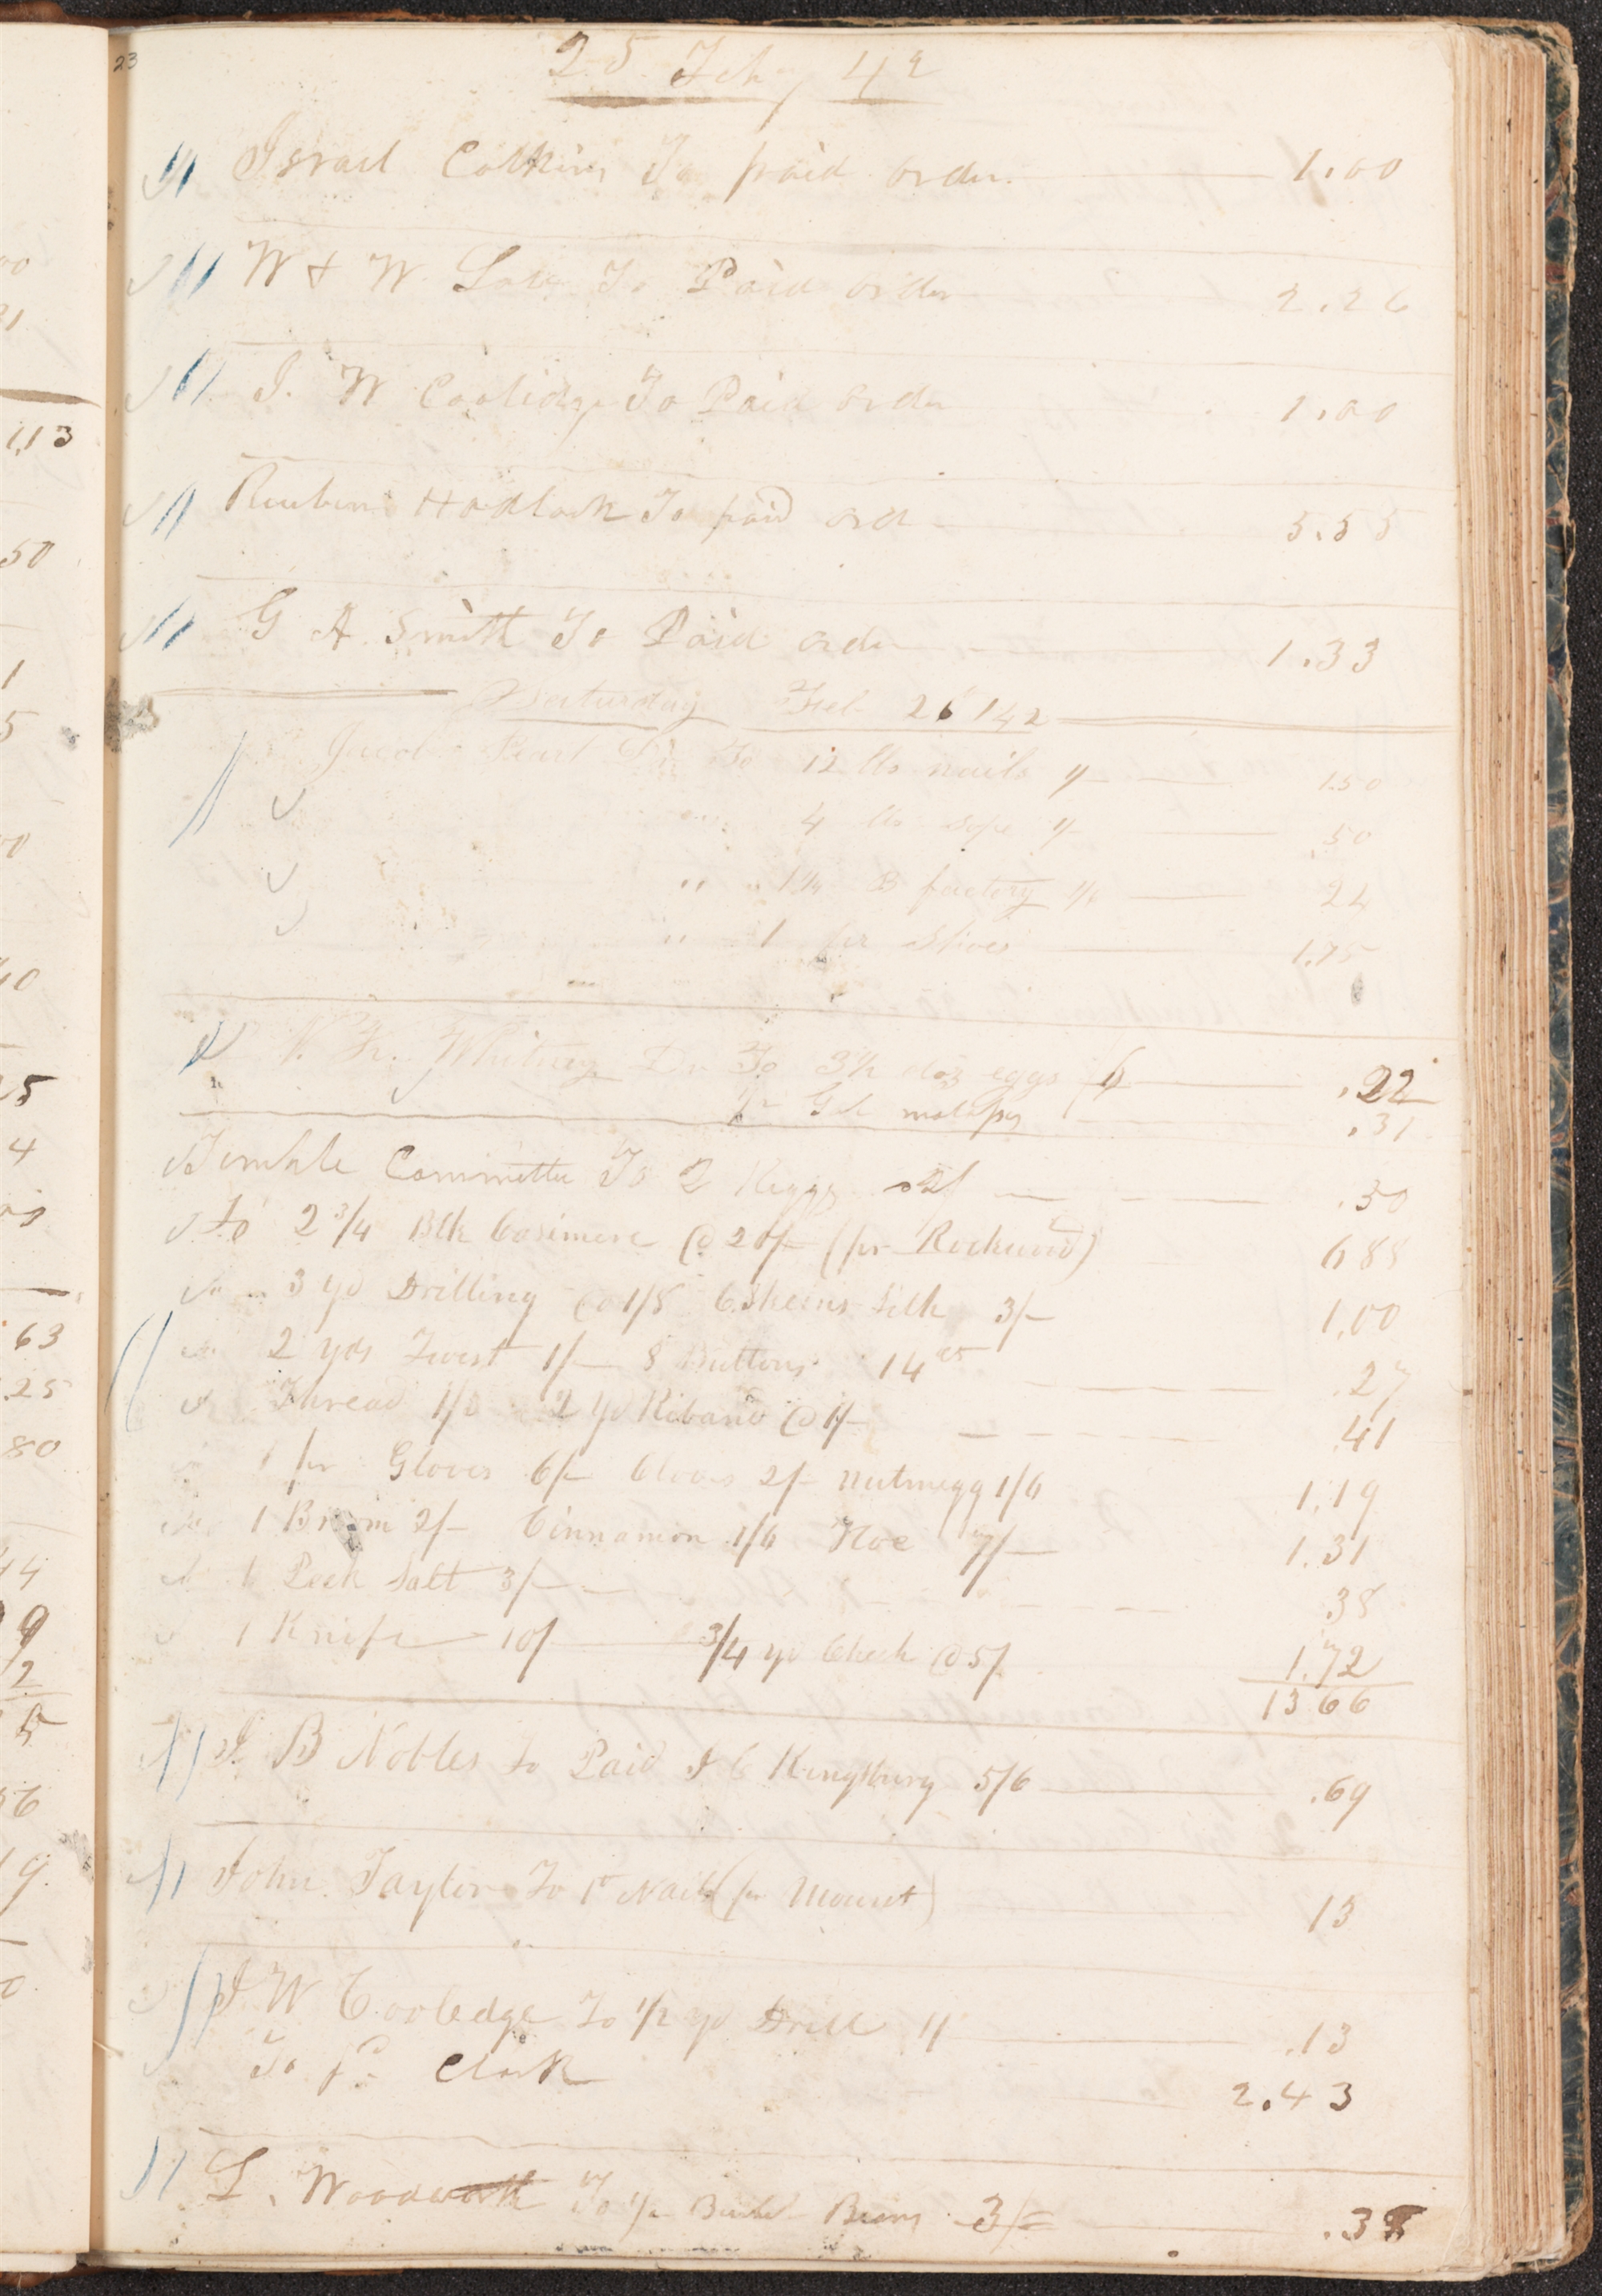 23
25 Feby 42
Israel Calkins To paid order 1.00
W & W Law To Paid order 2.26
J. W Coolidge To Paid order 1.00
Reuben Hadlock To paid ord 5.55
G A. Smith To Paid order 1.33
Saturday Feb 26 142
Jacob Pearl Dr To 12 lbs nails 1/- 1.50
" 4 lbs sope 1/- .50
" " 1 1/4 B factory 1/6 24
" " 1 pr Shoes 1.75
N. K. Whitney Dr To 3 1/2 doz eggs /6 .22
1/2 Gal molasses .31
Temple Committee To 2 Keggs 2/ .50
To 2 3/4 Blk Casimere @ 20/- (pr Rockwood) 6 88
" 3 yd Drilling @ 1/8 6 Skeins Silk 3/- 1,00
" 2 yds Twist 1/- 8 Buttons 14 ct .27
" Thread 1/3 2 yd Riband @ 1/- .41
" 1 pr Gloves 6/- Cloves 2/- nutmegg 1/6 1.19
" 1 Broom 2/- Cinnamon 1/6 Hoe 7/- 1.31
" 1 Peck Salt 3/- .38
" 1 Knife 10/ 3/4 yd Check @ 5/ 1.72
13 66
J B Nobles to Paid J C Kingsbury 5/6 .69
John Taylor To 1 lb Nails (pr Mount) 13
J W Cooledge To 1/2 yd Drill 1/ .13
To pr Clark 2.43
L. Woodworth To 1/2 Bushl Beans 3/= .38
00
21
1,13
50
1
5
00
40
25
4
63
.25
80
44
9
2
5
56
19.
0